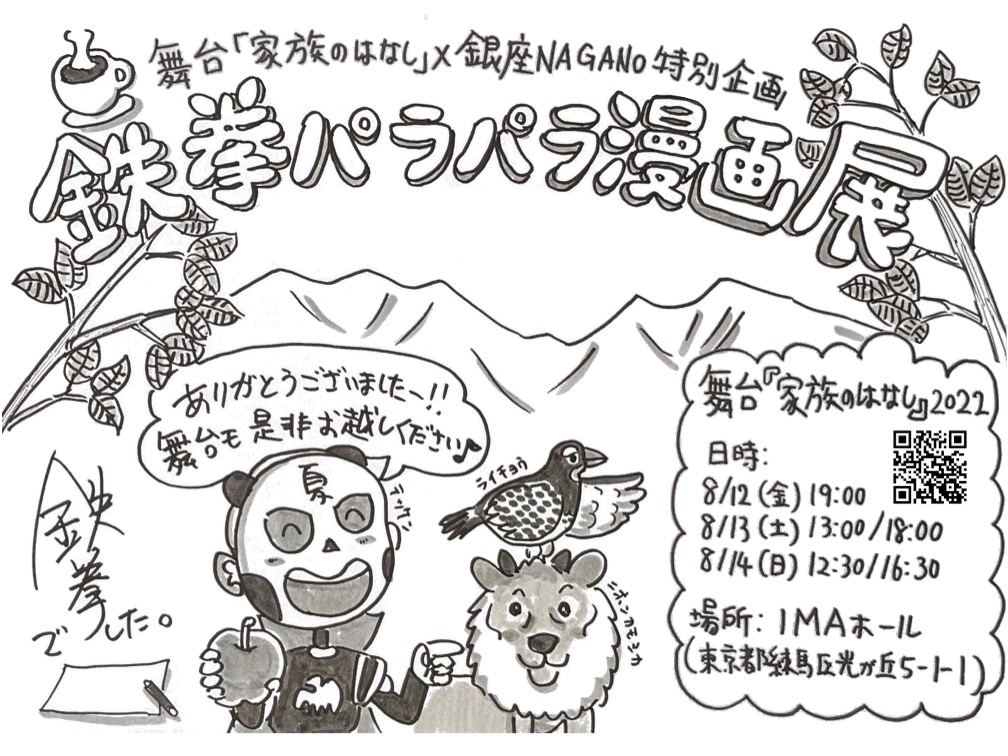 舞台「家族のはなし」×銀座NAGANO特別企画
鉄拳パラパラ漫画展
ありがとうございましたー!!
舞台も是非お越しください♪
夏
テッケン
ライチョウ
ニホンカモシカ
鉄拳
でした。
舞台『家族のはなし』2022
日時:
8/12(金)19:00
8/13(土)13:00/18:00
8/14(日)12:30/16:30
場所:IMAホール
(東京都練馬区光が丘5-1-1)